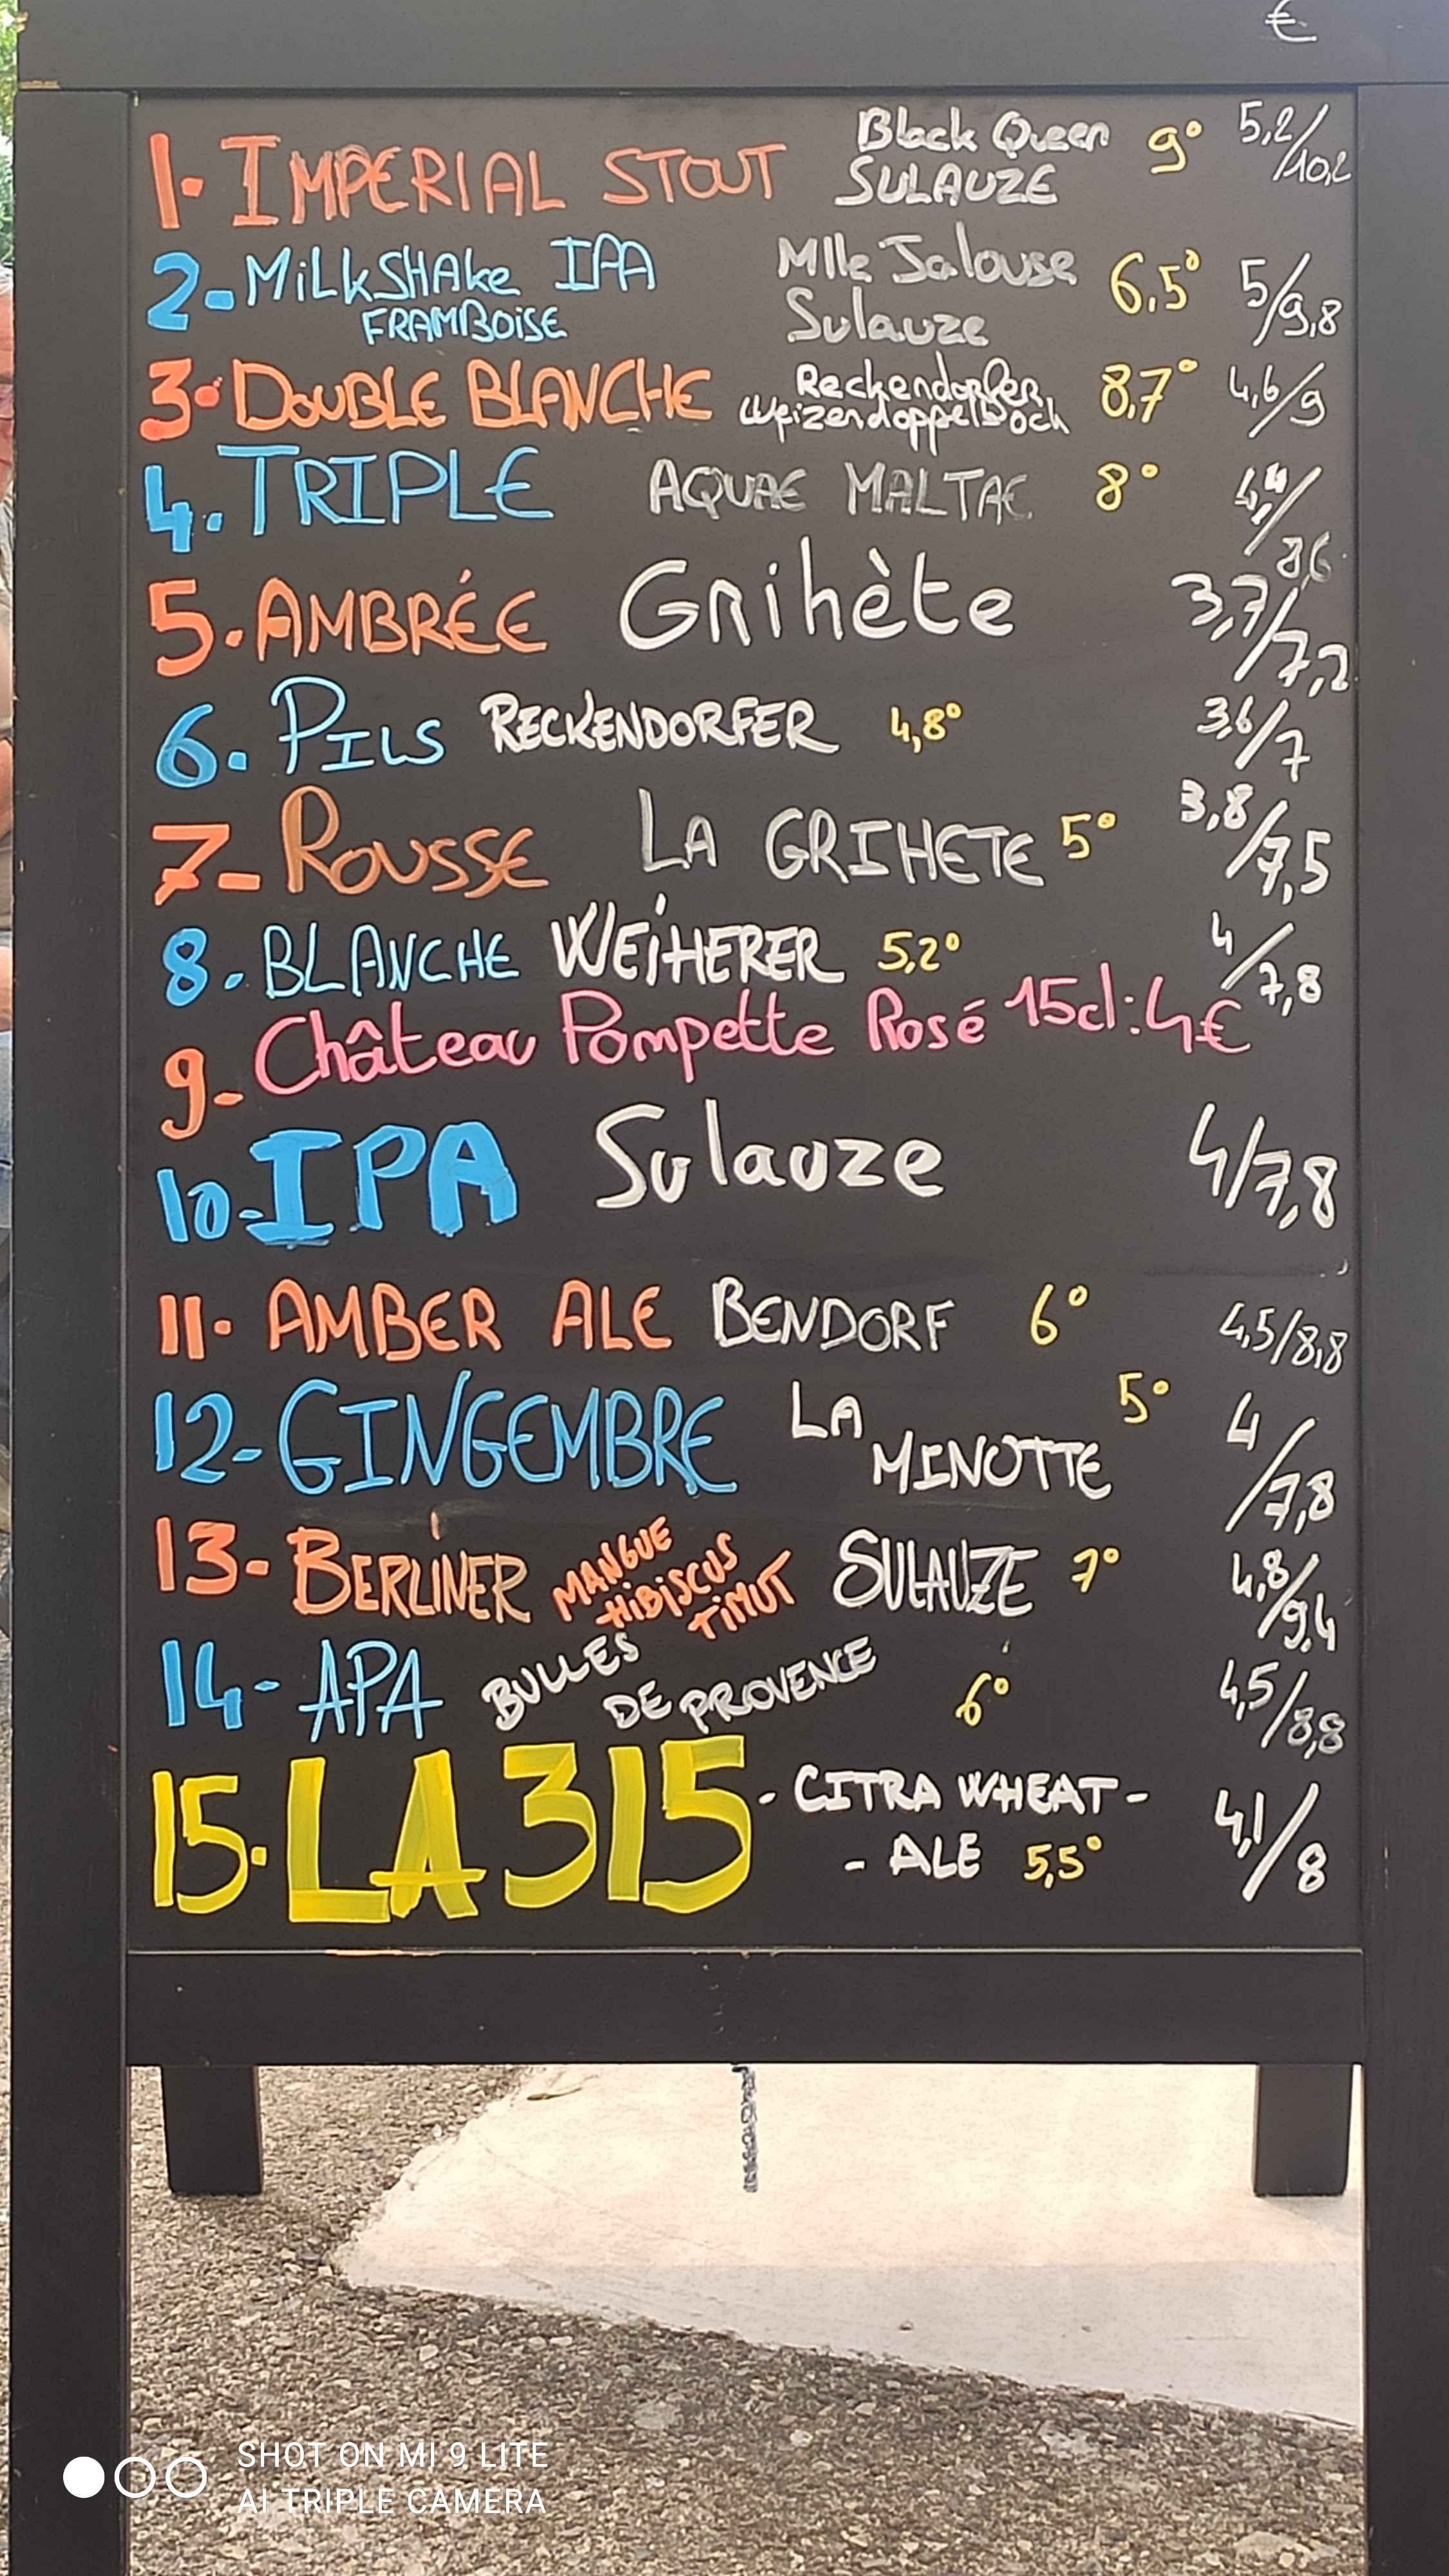 €
1. IMPERIAL STOUT Black Queen SULAUZE 9° 5,2/10,2
2- MiLkSHAke IPA FRAMBOiSE Mlle Jalouse Sulauze 6,5° 5/9,8
3. DOUBLE BLANCHE Reckendorfer Weizendoppelbock 8,7° 4,6/9
4. TRIPLE AQUAE MALTAE 8° 4,4/8,6
5. AMBRÉE Grihète 3,7/7,2
6. PILS RECKENDORFER 4,8° 3,6/7
7- ROUSSE LA GRIHETE 5° 3,8/7,5
8. BLANCHE WEiHERER 5,2° 4/7,8
9- Château Pompette Rosé 15cl: 4€
10- IPA Sulauze 4/7,8
11. AMBER ALE BENDORF 6° 4,5/8,8
12- GINGEMBRE LA MINOTTE 5° 4/7,8
13- BERLINER MANGUE HiBiSCUS TiMUT SULAUZE 7° 4,8/9,4
14- APA BULLES DE PROVENCE 6° 4,5/8,8
15. LA 315 - CITRA WHEAT - - ALE 5,5° 4,1/8
SHOT ON MI 9 LITE
AI TRIPLE CAMERA